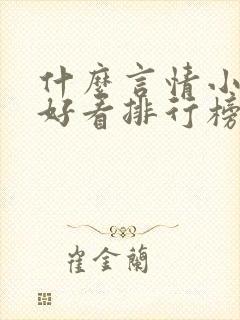 什麼言情小
好看排行榜
崔金蘭